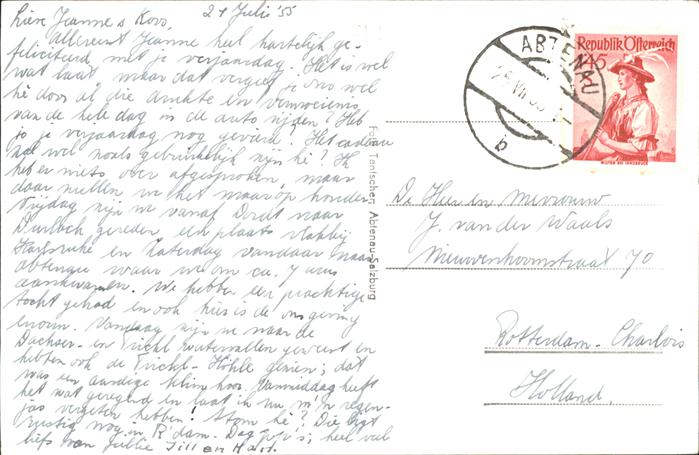 Lieve Jeanne & Koos, 24 Julie '55
Allereerst Jeanne heel hartelijk ge-
feliciteerd met je verjaardag. Het is wel
wat laat maar dat vergeef je ons wel
hè door al die drukte en vermoeienis
van de hele dag in de auto rijden? Heb
je je verjaardag nog gevierd? Het cadeau
zal wel noals gebruikelijk zijn hè? Ik
heb er niets over afgesproken, maar
daar zullen we het maar op houden
Vrijdag zijn we vanaf Dordt naar
Durlach gereden een plaats vlakbij
Karlsruhe en Zaterdag vandaar naar
Abtenau waar we om ca. 7 uur
aankwamen. We hebben een prachtige
tocht gehad en ook hier is de omgeving
enorm. Vandaag zijn we naar de
Dachser- en Trickl watervallen geweest en
hebben ook de Trickl-Höhle gezien; dat
was een aardige klim hoor. Vanmiddag heeft
het wat geregend en laat ik nu m'n regen-
jas vergeten hebben! Stom hè? Die ligt
rustig nog in R'dam. Dag jo's; heel veel
liefs van jullie Jill en Hard.
Foto Tentschert Abtenau-Salzburg
ABTENAU
VII.55
b
Republik Österreich
1.45
WILTEN BEI INNSBRUCK
De Heer en Mevrouw
J. van der Waals
Nieuwenhoornstraat 70
Rotterdam-Charlois
Holland.